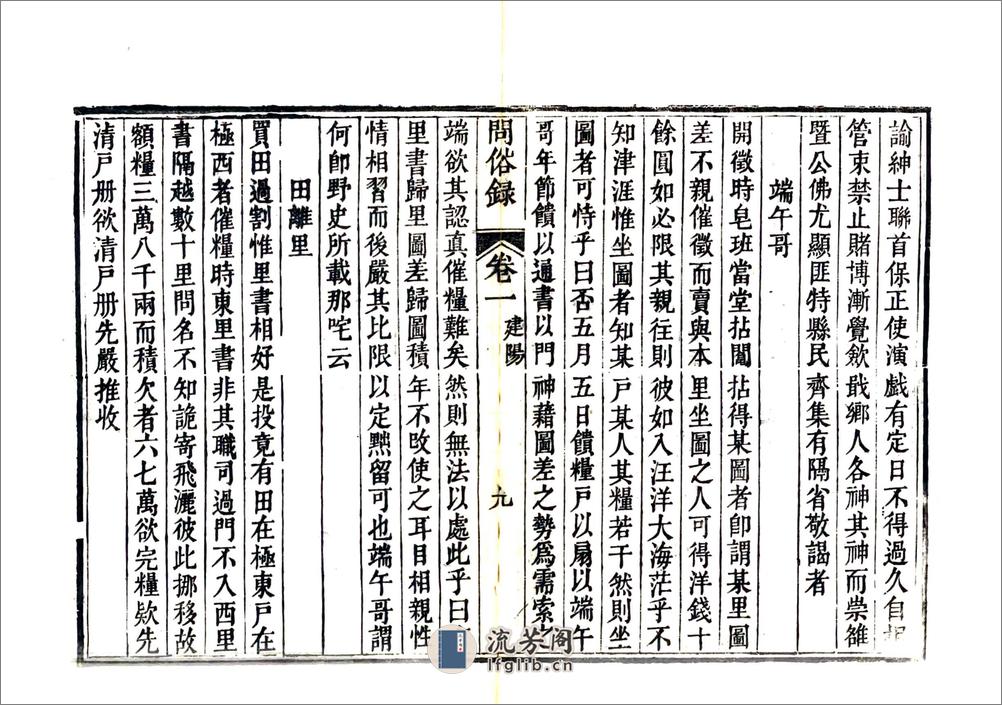 諭紳士聯首保正使演戲有定日不得過久自相
管束禁止賭博漸覺歛戢鄉人各神其神而崇雒
暨公佛尤顯匪特縣民齊集有隔省敬謁者
端午哥
開徵時皂班當堂拈鬮拈得某圖者卽謂某里圖
差不親催徵而賣與本里坐圖之人可得洋錢十
餘圓如必限其親徃則彼如入汪洋大海茫乎不
知津涯惟坐圖者知某戶某人其糧若干然則坐
圖者可恃乎曰否五月五日饋糧戶以扇以端午
哥年節饋以通書以門神藉圖差之勢爲需索之
問俗錄
卷一
建陽
九
端欲其認真催糧難矣然則無法以處此乎曰
里書歸里圖差歸圖積年不改使之耳目相親性
情相習而後嚴其比限以定黜留可也端午哥謂
何卽野史所載那咤云
田離里
買田過割惟里書相好是投竟有田在極東戶在
極西者催糧時東里書非其職司過門不入西里
書隔越數十里問名不知詭寄飛灑彼此挪移故
額糧三萬八千兩而積欠者六七萬欲完糧欵先
清戶册欲清戶册先嚴推收
流芳閣
lfglib.cn